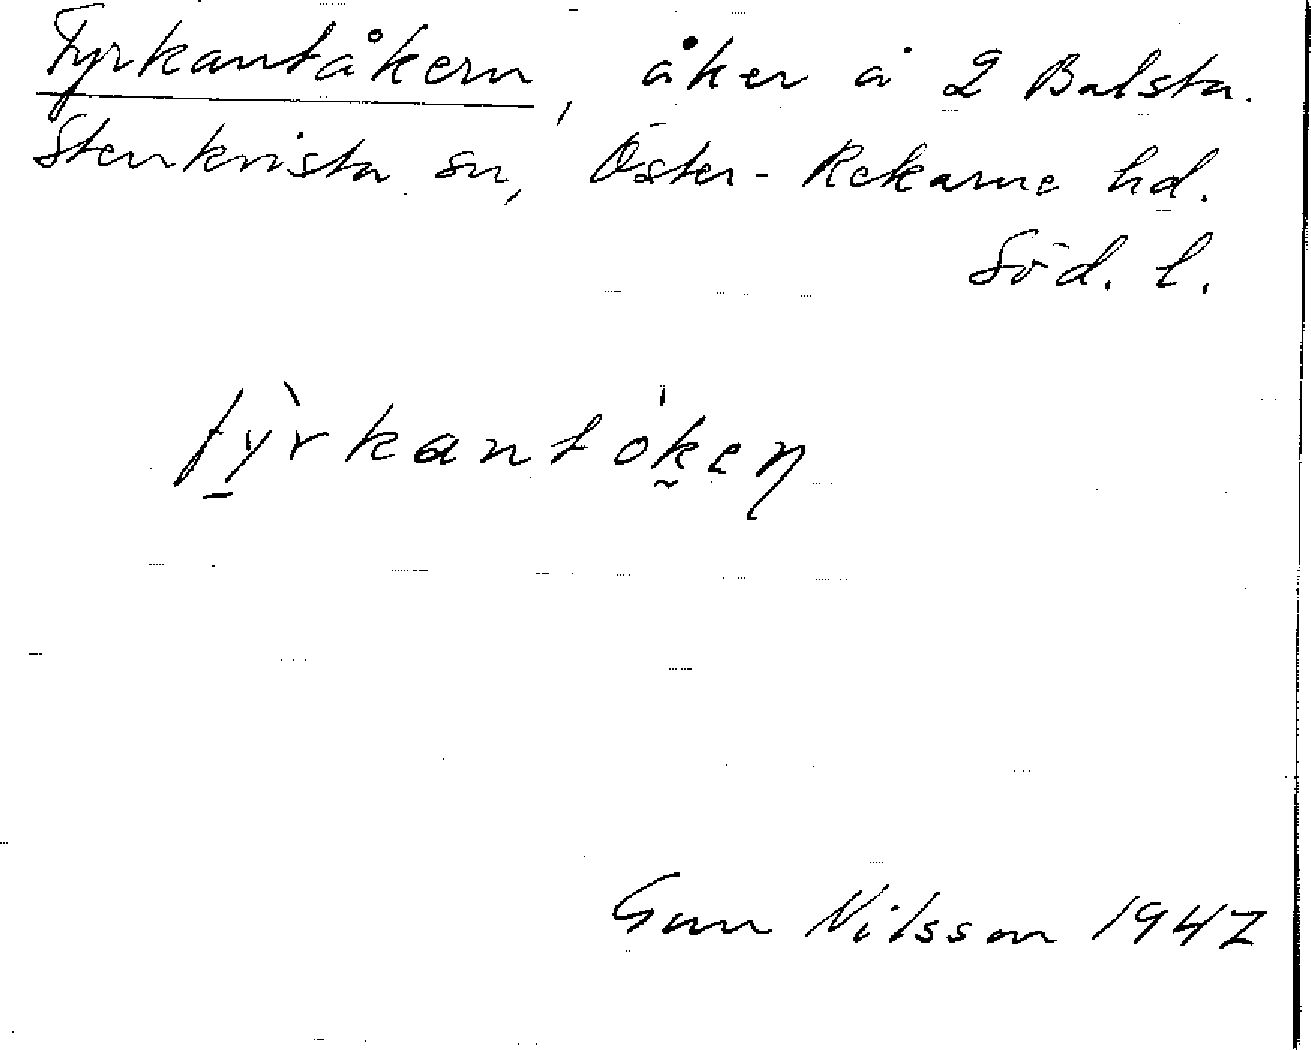 Fyrkantåkern, åker å 2 Balsta.
Stenkvista sn, Öster-Rekarne hd.
Söd. l.
fỳ̠rkantók̰eņ
Gun Nilsson 1947